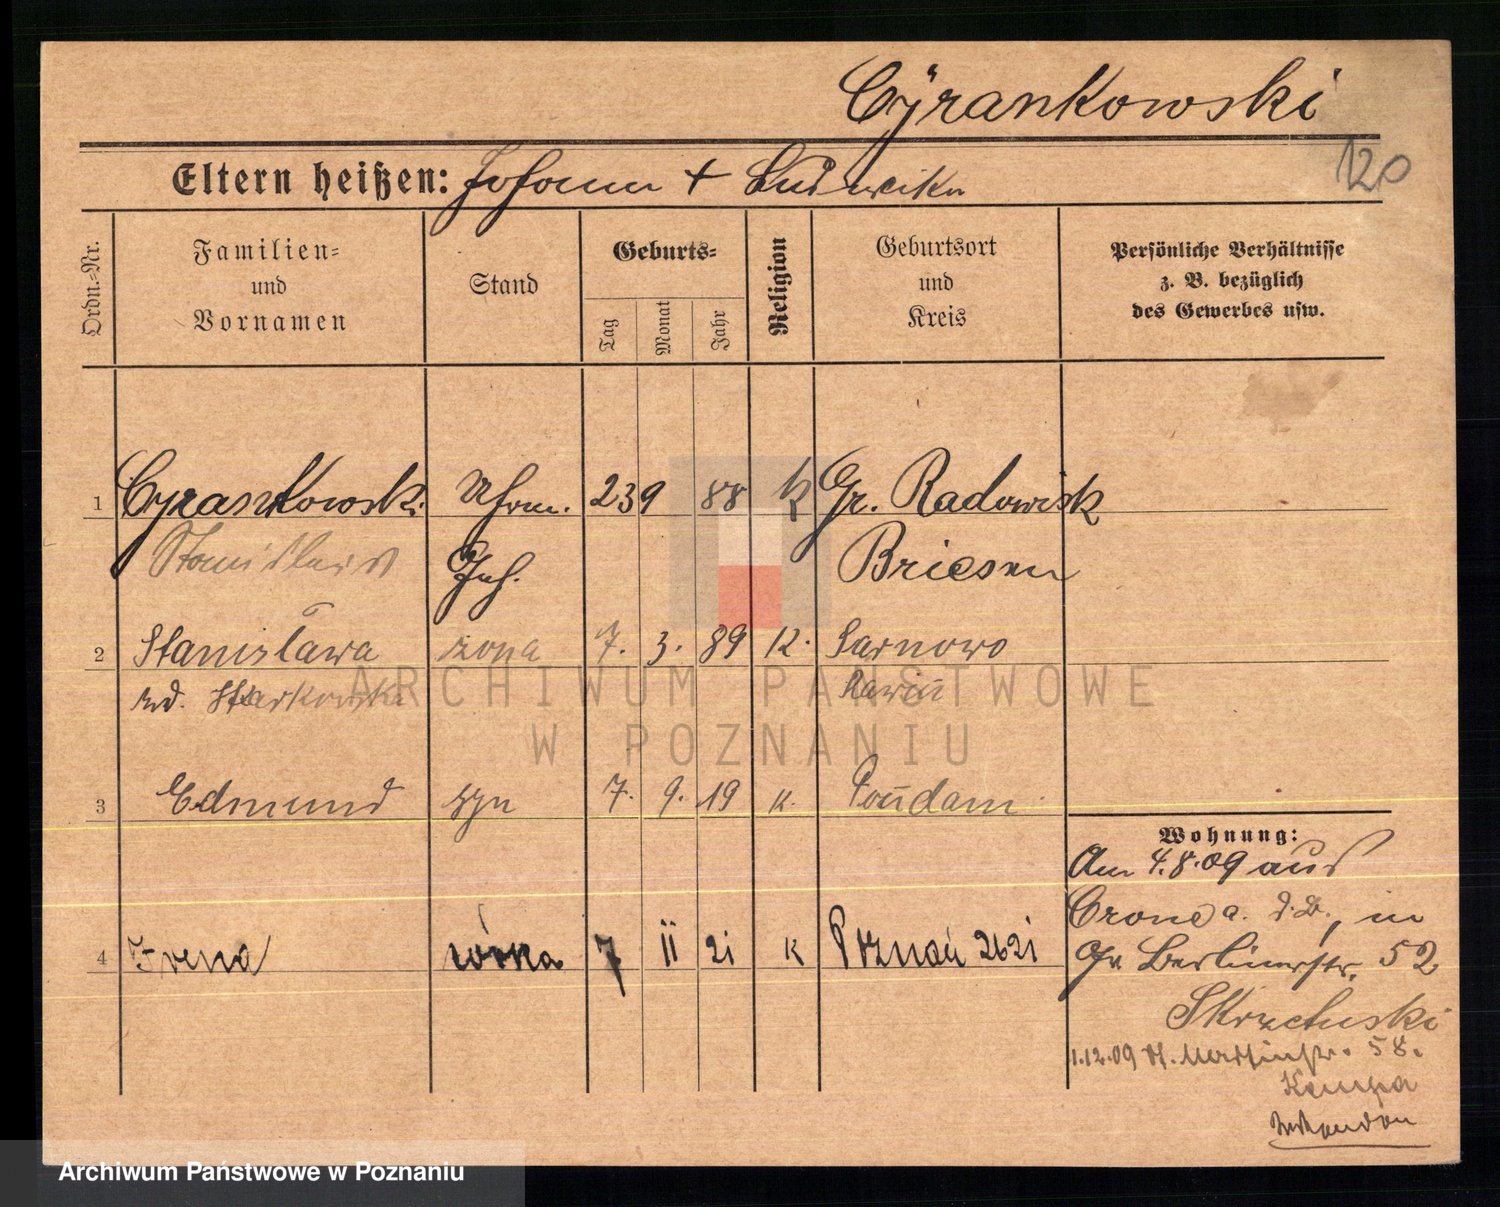 Cyrankowski
120
Eltern heißen: Johann + Ludwika
Ordn.-Nr.
Familien-
und
Vornamen
Stand
Geburts-
Tag
Monat
Jahr
Religion
Geburtsort
und
Kreis
Persönliche Verhältnisse
z. B. bezüglich
des Gewerbes usw.
1 Cyrankowski Uhrm. 23 9 88 K Gr. Radowisk
Stanislaus Geh. Briesen
2 Stanisława żona 7. 3. 89 K. Sarnowo
Starkowska Rawicz
3 Edmund syn 7. 9. 19 K.
4 Irena córka 7 II 21 K Poznań
Wohnung:
Am 4.8.09 aus
Crone a. d. B., in
Gr. Berlinerstr. 52
Skrzetuski
1.12.09 St. Martinstr. 58.
Kempa
ARCHIWUM PAŃSTWOWE
W POZNANIU
Archiwum Państwowe w Poznaniu